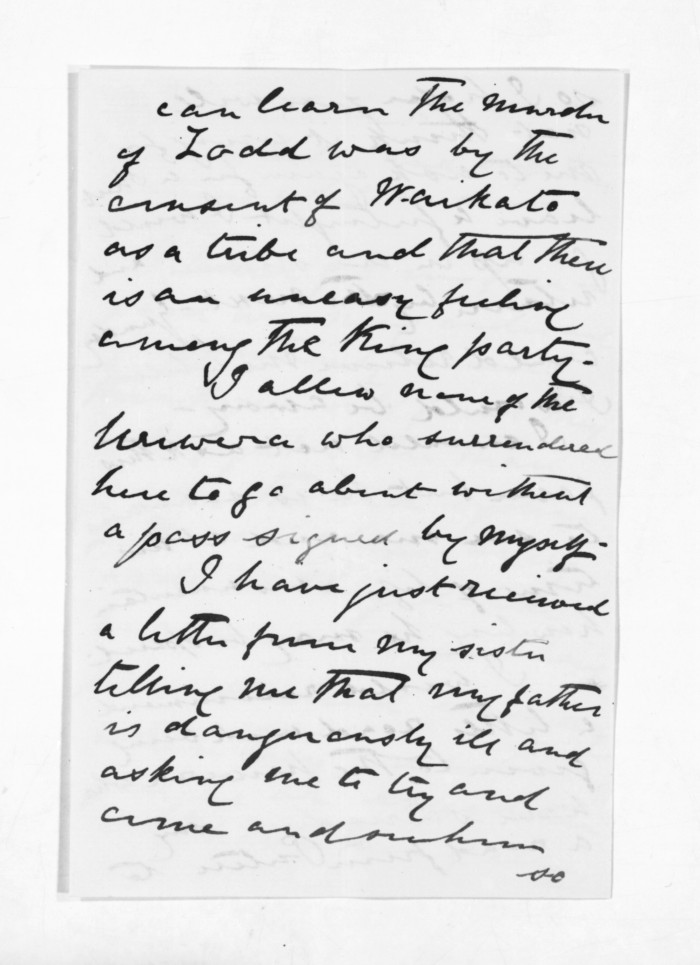 can learn the murder
of Todd was by the
consent of Waikato
as a tribe and that there
is an uneasy feeling
among the King party -
I allow none of the
Urewera who surrendered
here to go about without
a pass signed by myself -
I have just received
a letter from my sister
telling me that my father
is dangerously ill and
asking me to try and
come and see him
so